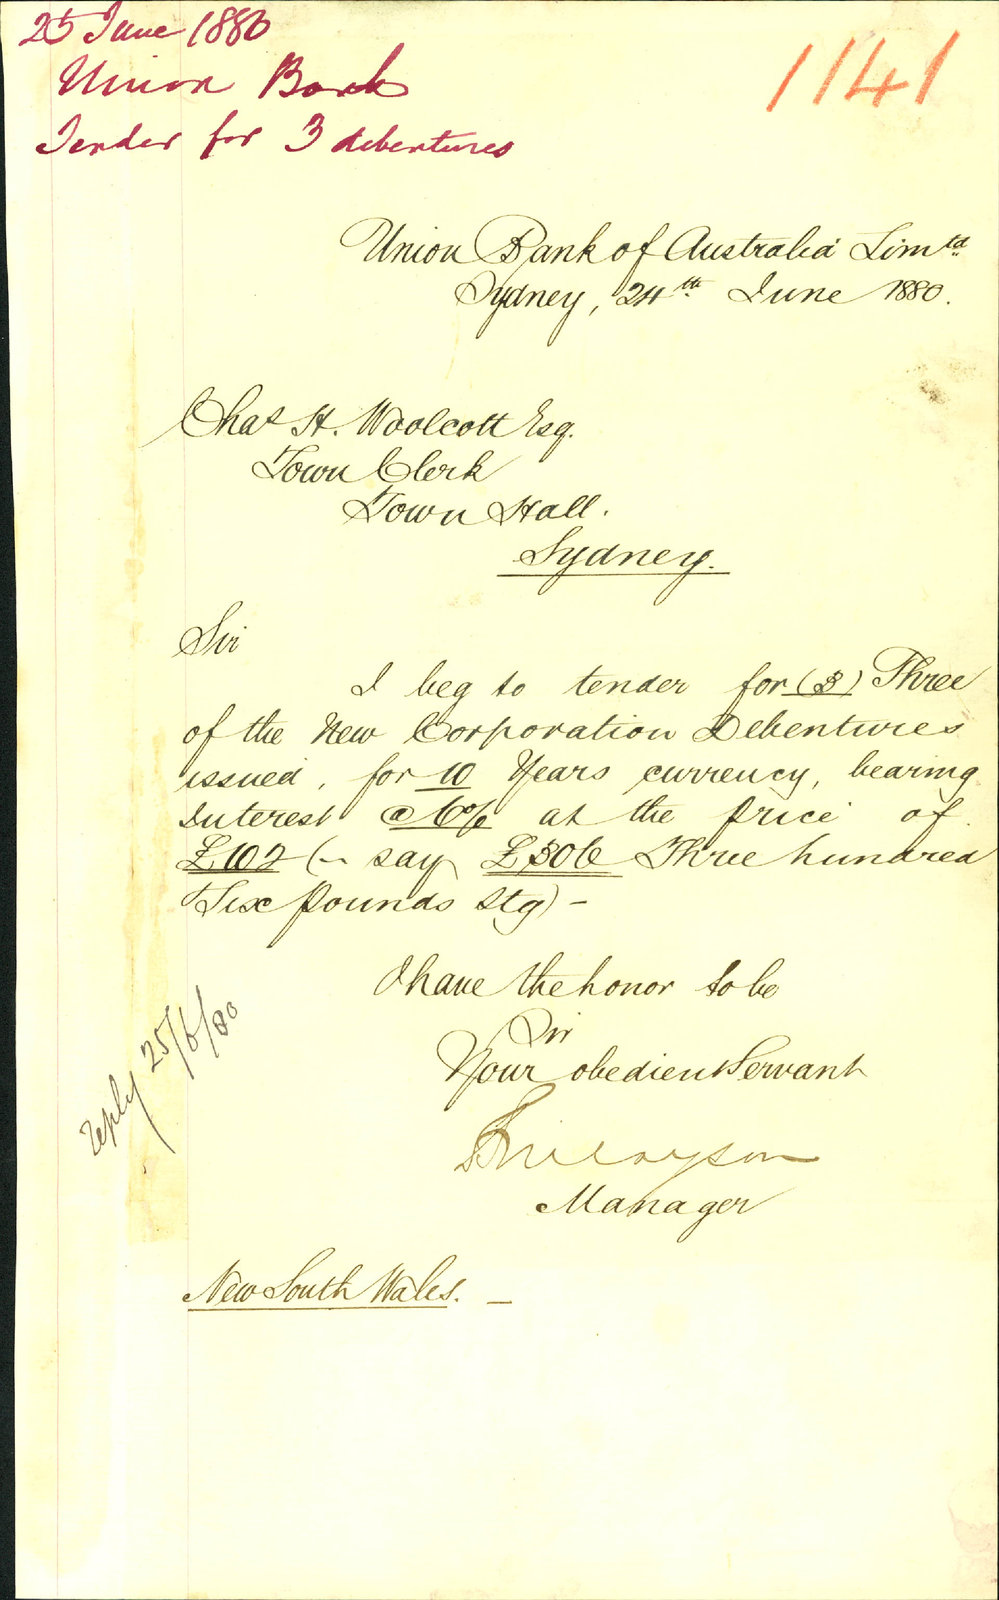 25 June 1880
Union Bank
Tender for 3 debentures
1141
Union Bank of Australia Limtd.
Sydney, 24th June 1880.
Chas H. Woolcott Esq.
Town Clerk
Town Hall.
Sydney.
Sir
I beg to tender for (3) Three
of the New Corporation Debentures
issued, for 10 Years currency, bearing
Interest @ 6% at the price of
£102 (- say £306 Three hundred
Six pounds Stg) -
I have the honor to be
Sir
Your obedient Servant
Manager
reply 25/6/80
New South Wales. -